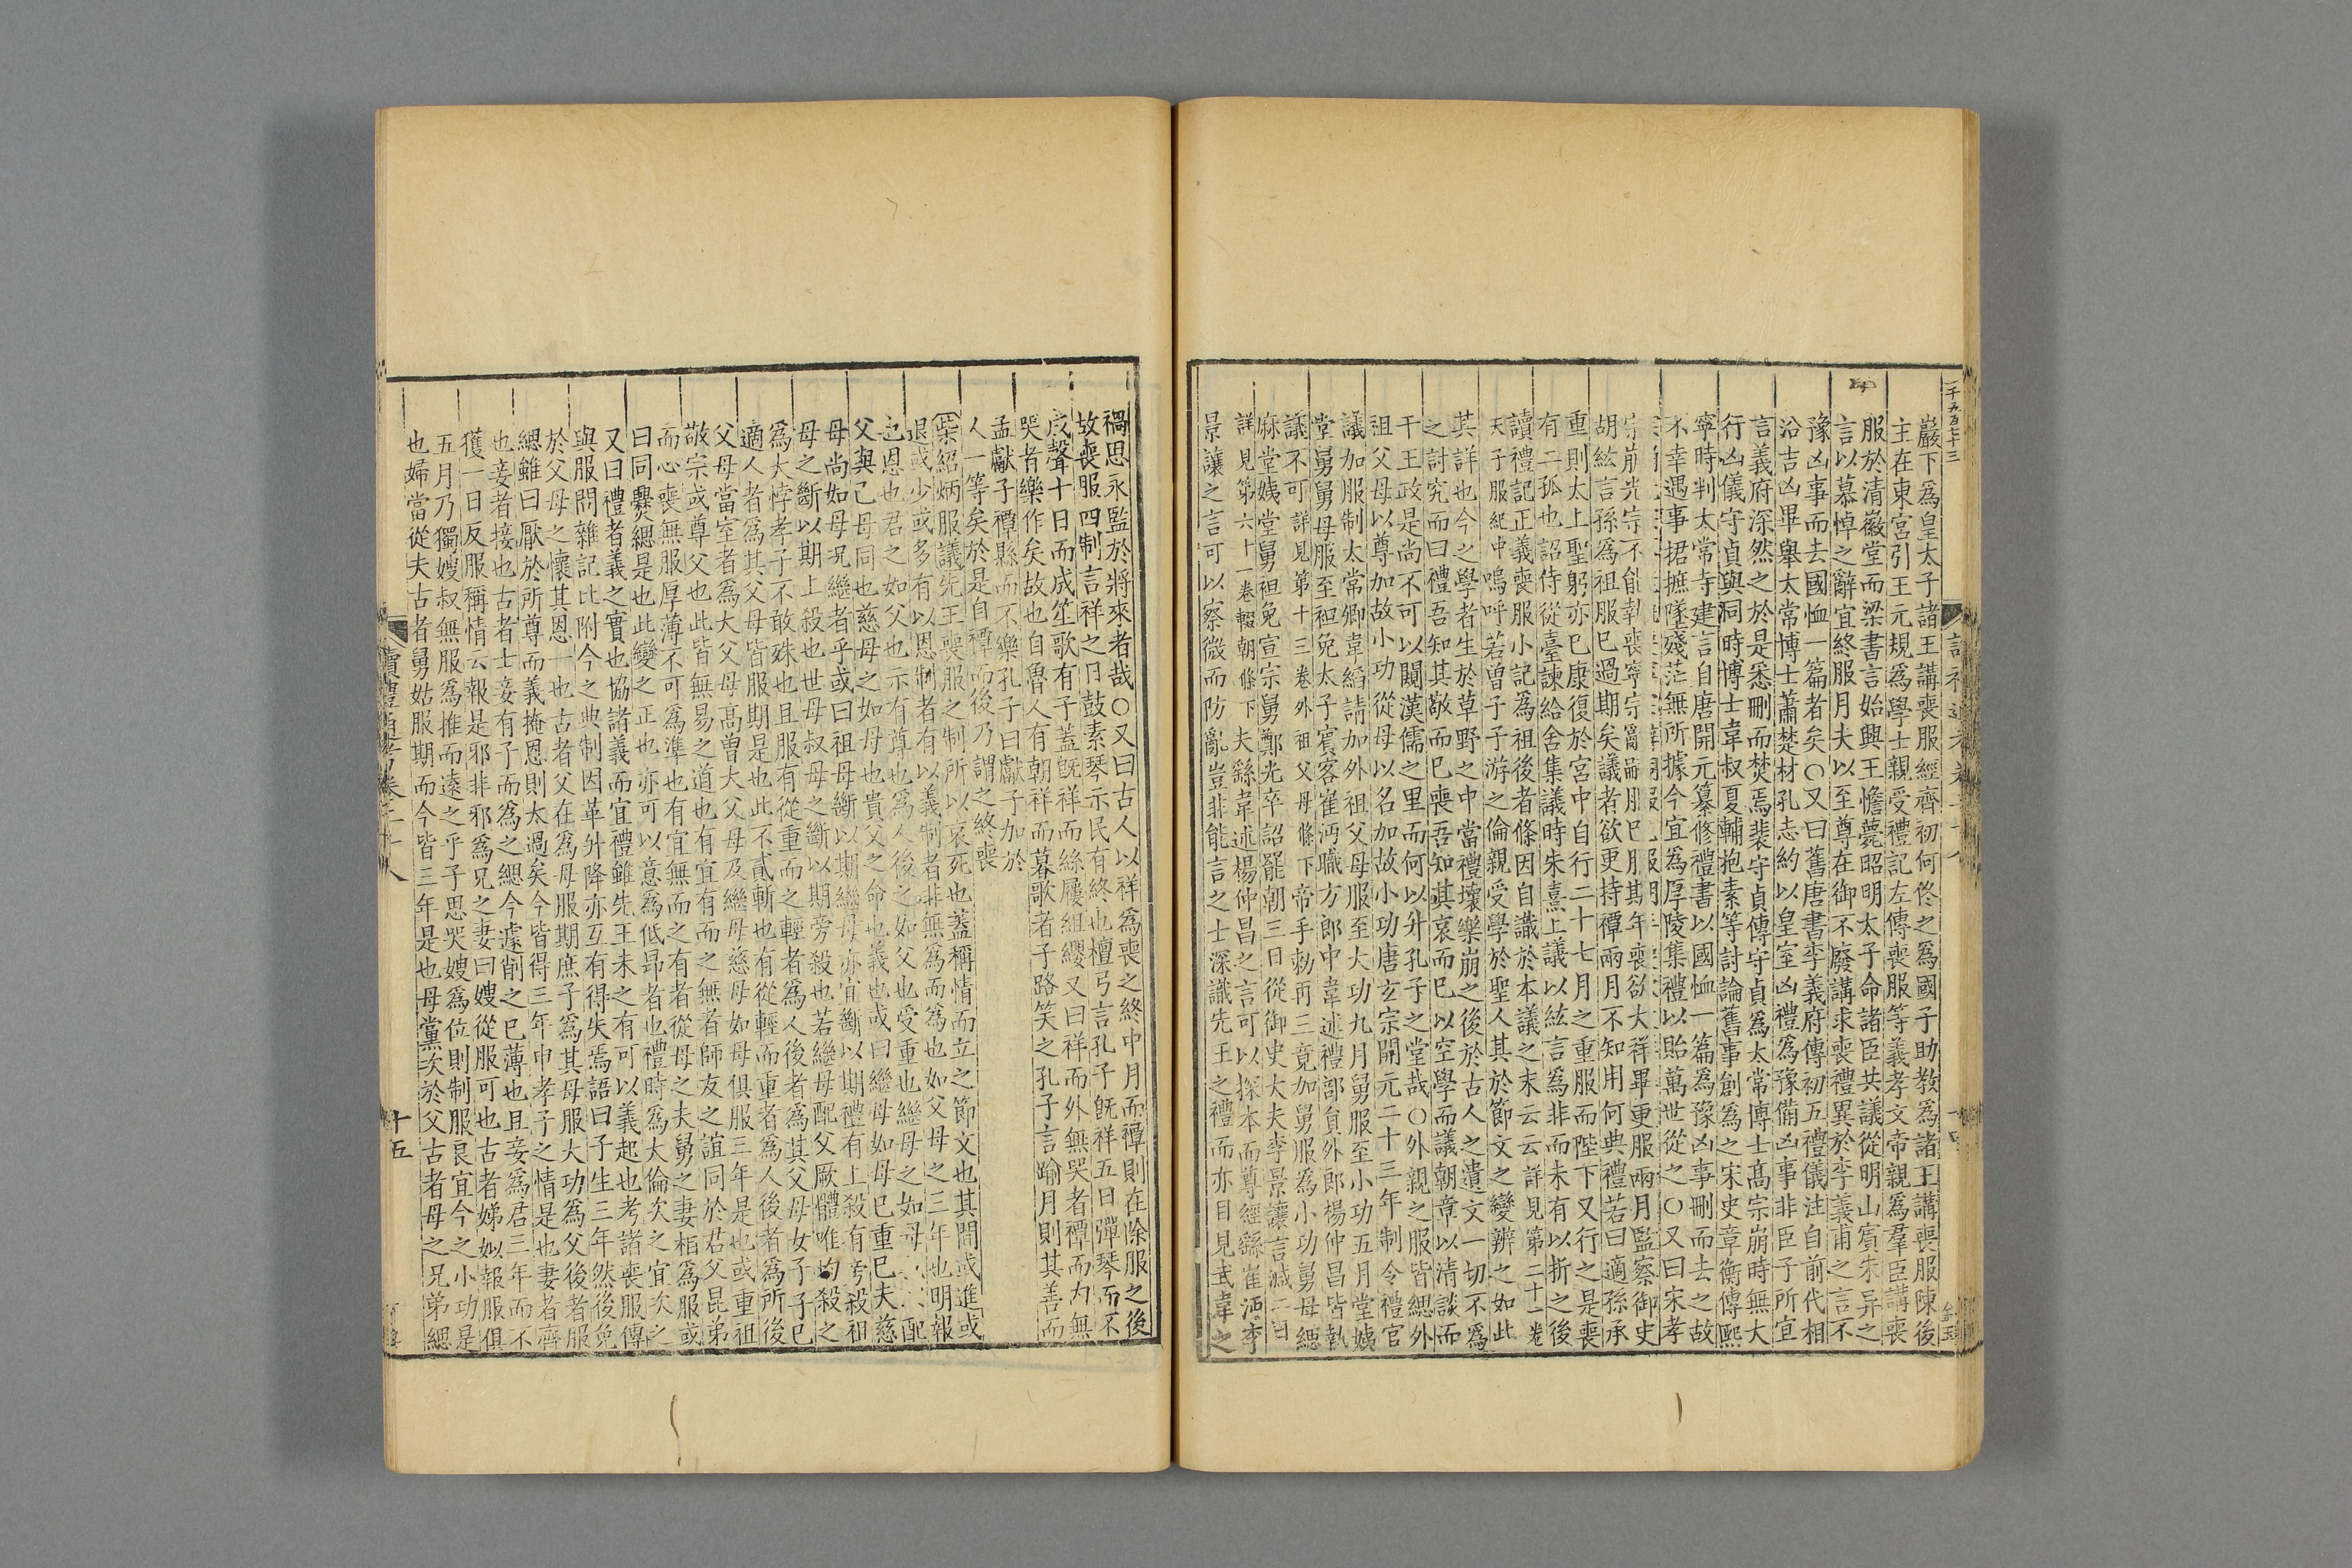 一千五百七十三
嚴下爲皇太子諸王講喪服經齊初何佟之爲國子助教爲諸王講喪服陳後
主在東宮引王元規爲學士親受禮記左傳喪服等義孝文帝親爲羣臣講喪
服於清徽堂而梁書言始興王憺薨昭明太子命諸臣共議從明山賓朱异之
言以慕悼之辭宜終服月夫以至尊在御不廢講求喪禮異於李義甫之言不
豫凶事而去國恤一篇者矣○又曰舊唐書李義府傳初五禮儀注自前代相
沿吉凶畢舉太常博士蕭楚材孔志約以皇室凶禮爲豫備凶事非臣子所宜
言義府深然之於是悉刪而焚焉裴守貞傳守貞爲太常博士高宗崩時無大
行凶儀守貞與同時博士韋叔夏輔抱素等討論舊事創爲之宋史章衡傳熙
寧時判太常寺建言自唐開元纂修禮書以國恤一篇爲豫凶事刪而去之故
不幸遇事捃摭墜殘茫無所據今宜爲厚陵集禮以貽萬世從之○又曰宋孝
宗崩光宗不能執喪寧宗嗣服巳服其年喪欲大祥畢更服兩月監察御史
胡紘言孫爲祖服巳過期矣議者欲更持禫兩月不知用何典禮若曰適孫承
重則太上聖躬亦巳康復於宮中自行二十七月之重服而陛下又行之是喪
有二孤也詔侍從臺諫給舍集議時朱熹上議以紘言爲非而未有以折之後
讀禮記正義喪服小記爲祖後者條因自識於本議之末云云詳見第二十一卷
天子服紀中嗚呼若曾子子游之倫親受學於聖人其於節文之變辨之如此
其詳也今之學者生於草野之中當禮壞樂崩之後於古人之遺文一切不爲
之討究而曰禮吾知其敬而巳喪吾知其哀而巳以空學而議朝章以清談而
干王政是尚不可以闚漢儒之里而何以升孔子之堂哉○外親之服皆緦外
祖父母以尊加故小功從母以名加故小功唐玄宗開元二十三年制令禮官
議加服制太常卿韋縚請加外祖父母服至大功九月舅服至小功五月堂姨
堂舅舅母服至袒免太子賓客崔沔職方郎中韋述禮部員外郎楊仲昌皆執
議不可詳見第十三卷外祖父母條下帝手勅再三竟加舅服爲小功舅母緦
麻堂姨堂舅袒免宣宗舅鄭光卒詔罷朝三日從御史大夫李景讓言減二日
詳見第六十一卷輟朝條下夫繇韋述楊仲昌之言可以探本而尊經繇崔沔李
景讓之言可以察微而防亂豈非能言之士深識先王之禮而亦目見武韋之
禍思永監於將來者哉○又曰古人以祥爲喪之終中月而禫則在除服之後
故喪服四制言祥之日鼓素琴示民有終也檀弓言孔子旣祥五日彈琴而不
成聲十日而成笙歌有子蓋旣祥而絲屨組纓又曰祥而外無哭者禫而內無
哭者樂作矣故也自魯人有朝祥而暮歌者子路笑之孔子言踰月則其善而
孟獻子禫縣而不樂孔子曰獻子加於
人一等矣於是自禫而後乃謂之終喪
柴紹炳服議先王喪服之制所以哀死也蓋稱情而立之節文也其間或進或
退或少或多有以恩制者有以義制者非無爲而爲也如父母之三年也明報
也恩也君之如父也示有尊也爲人後之如父也受重也繼母之如母 配
父與己母同也慈母之如母也貴父之命也義也或曰繼母如母巳重巳夫慈
母尚如母况繼者乎或曰祖母斷以期繼母亦宜斷以期禮有上殺有旁殺祖
母之斷以期上殺也世母叔母之斷以期旁殺也若繼母配父厥體唯均殺之
爲大悖孝子不敢殊也且服有從重而之輕者爲人後者爲其父母女子子已
適人者爲其父母皆服期是也此不貳斬也有從輕而重者爲人後者爲所後
父母當室者爲大父母高曾大父母及繼母慈母如母俱服三年是也或重祖
敬宗或尊父也此皆無易之道也有宜有而之無者師友之誼同於君父昆弟
而心喪無服厚薄不可爲準也有宜無而之有者從母之夫舅之妻相爲服或
曰同爨緦是也此變之正也亦可以意爲低昂者也禮時爲大倫次之宜次之
又曰禮者義之實也協諸義而宜禮雖先王未之有可以義起也考諸喪服傳
與服問雜記比附今之典制因革升降亦互有得失焉語曰子生三年然後免
於父母之懷其恩一也古者父在爲母服期庶子爲其母服大功爲父後者服
緦雖曰厭於所尊而義掩恩則太過矣今皆得三年申孝子之情是也妻者齊
也妾者接也古者士妾有子而爲之緦今遽削之巳薄也且妾爲君三年而不
獲一日反服稱情云報是邪非邪爲兄之妻曰嫂從服可也古者娣姒報服俱
五月乃獨嫂叔無服爲推而遠之乎子思哭嫂爲位則制服良宜今之小功是
也婦當從夫古者舅姑服期而今皆三年是也母黨次於父古者母之兄弟緦
讀禮通考卷二十八
十五